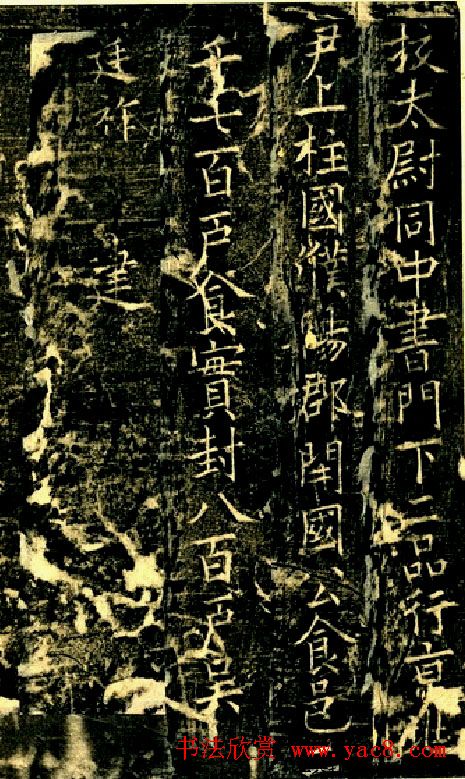 校太尉同中書門下二品行京兆
尹上柱國濮陽郡開國公食邑
千七百戶食實封八百戶吳
廷祚 建
书法欣赏 www.yac8.com